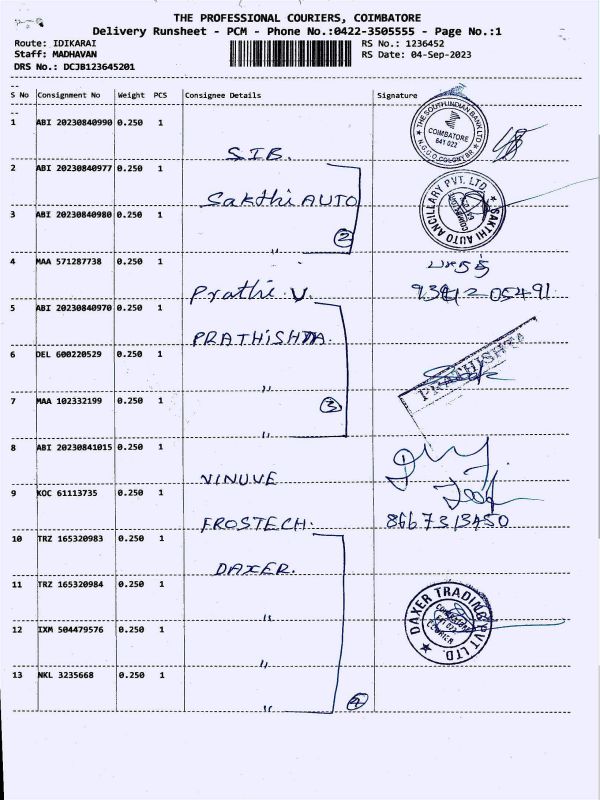 THE PROFESSIONAL COURIERS, COIMBATORE
Delivery Runsheet - PCM - Phone No.:0422-3505555 - Page No.:1
Route: IDIKARAI RS No.: 1236452
Staff: MADHAVAN RS Date: 04-Sep-2023
DRS No.: DCJB123645201
S No Consignment No Weight PCS Consignee Details Signature
1 ABI 20230840990 0.250 1 S.I.B. THE SOUTH INDIAN BANK LTD COIMBATORE 641 022 N.G.G.O. COLONY BR
2 ABI 20230840977 0.250 1 Sakthi AUTO SAKTHI AUTO ANCILLARY PVT. LTD
3 ABI 20230840980 0.250 1 " 2
4 MAA 571287738 0.250 1 Prathi.V.
5 ABI 20230840970 0.250 1 PRATHISHTA.
6 DEL 600220529 0.250 1 " PRATHISHTA
7 MAA 102332199 0.250 1 " 3
8 ABI 20230841015 0.250 1 VINUVE
9 KOC 61113735 0.250 1 FROSTECH.
10 TRZ 165320983 0.250 1 DAXER.
11 TRZ 165320984 0.250 1 " DAXER TRADING PVT LTD.
12 IXM 504479576 0.250 1 "
13 NKL 3235668 0.250 1 " 4